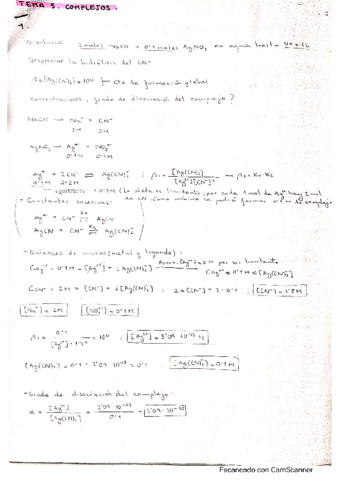 TEMA 5. COMPLEJOS
1.
Disolución 2 moles NaCN + 0'1 moles AgNO3 en agua hasta VT = 1L
Despreciar la hidrólisis del CN-
β2 [Ag(CN)2-] = 10^21 cte de formación global
concentraciones, grado de disociación del complejo?
NaCN → Na+ + CN-
2M 2M
AgNO3 → Ag+ + NO3-
0'1M 0'1M
Ag+ + 2CN- ⇌ Ag(CN)2- ; β2 = [Ag(CN)2-] / [Ag+][CN-]^2 → β2 = K1·K2
0'1M
0'1M (La plata es limitante, por cada 1 mol de Ag+ hay 2 mol
de CN- como máximo se podrá formar 0'1 del complejo)
- Constantes sucesivas:
Ag+ + CN- ⇌ AgCN
AgCN + CN- ⇌ Ag(CN)2-
- Balances de masas (metal y ligando):
CAg+ = 0'1M = [Ag+] + [Ag(CN)2-] por ser limitante
CAg+ = 0'1M ≈ [Ag(CN)2-]
CCN- = 2M = [CN-] + 2[Ag(CN)2-] ; 2 = [CN-] + 2·0'1 ; [CN-] = 1'8M
[Na+] = 2M [NO3-] = 0'1M
β2 = 0'1 / [Ag+]·1'8^2 = 10^21 ; [Ag+] = 3'09·10^-23 M
[Ag(CN)2-] = 0'1 - 3'09·10^-23 ≈ 0'1 ; [Ag(CN)2-] = 0'1M
- Grado de disociación del complejo:
α = [Ag+] / [Ag(CN)2-] = 3'09·10^-23 / 0'1 = 3'09·10^-22
Escaneado con CamScanner